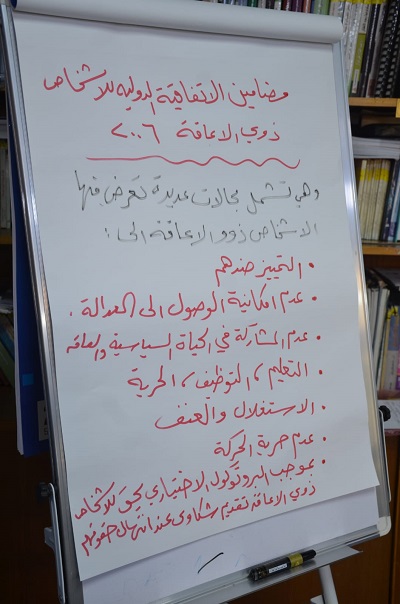 مضامين الاتفاقية الدولية للاشخاص
ذوي الاعاقة ٢٠٠٦
وهي تشمل مجالات عديدة تعرض فيها
الاشخاص ذوو الاعاقة الى :
• التمييز ضدهم
• عدم امكانية الوصول الى العدالة .
• عدم المشاركة في الحياة السياسية والعامة
• التعليم ، التوظيف ، الحرية
• الاستغلال والعنف
• عدم حرية الحركة
• بموجب البروتوكول الاختياري يحق للاشخاص
ذوي الاعاقة تقديم شكاوى عند انتهاك حقوقهم